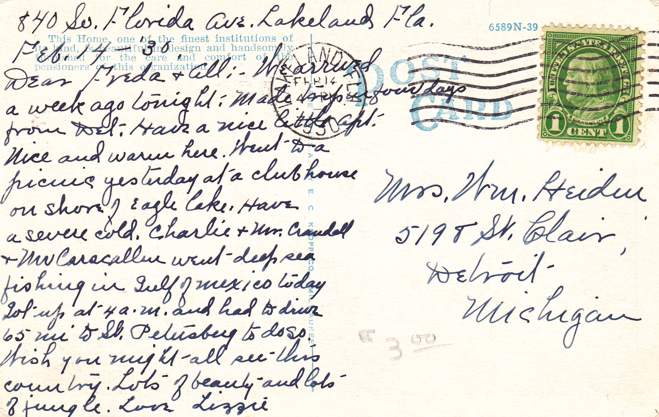 840 So. Florida Ave. Lakeland Fla.
Feb. 14 - '30.
6589N-39
This Home, one of the finest institutions of
its kind, is beautiful in design and handsomely
for the care and comfort of
pensioners of this organization
Dear Freda & all:- We arrived
a week ago tonight; Made trip in four days
from Det. Have a nice little apt.
Nice and warm here. Went to a
picnic yesterday at a club house
on shore of Eagle Lake. Have
a severe cold. Charlie & Mr. Crandall
& Mr Caragallen went deep sea
fishing in Gulf of Mexico today
Got up at 4 a.m. and had to drive
65 mi to St. Petersberg to do so.
Wish you might all see this
country. Lots of beauty and lots
of jungle. Love Lizzie
LAKELAND FLA.
FEB 14
1930
POST
CARD
1 CENT 1
Mrs. Wm. Heiden
5198 St. Clair,
Detroit
Michigan
3 00